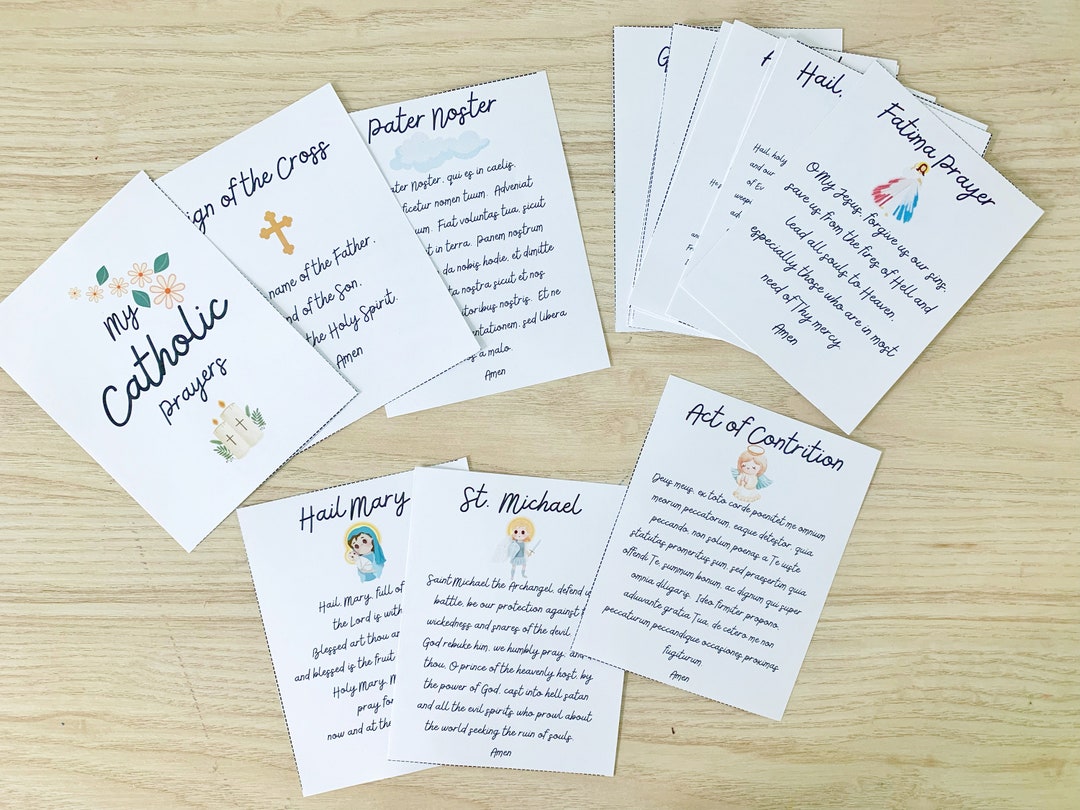 My
Catholic
Prayers
ign of the Cross
name of the Father,
nd of the Son,
the Holy Spirit.
Amen
Pater Noster
ater Noster, qui es in caelis,
ficetur nomen tuum. Adveniat
um. Fiat voluntas tua, sicut
t in terra. Panem nostrum
da nobis hodie, et dimitte
ta nostra sicut et nos
itoribus nostris. Et ne
ntationem, sed libera
s a malo.
Amen
G
Hail,
Hail, holy
and our
of E
Fatima Prayer
O My Jesus, forgive us our sins,
save us from the fires of Hell and
lead all souls to Heaven,
especially those who are in most
need of Thy mercy.
Amen
Hail Mary
Hail, Mary, full of
the Lord is with
Blessed art thou a
and blessed is the fruit
Holy Mary, M
pray for
now and at the
St. Michael
Saint Michael the Archangel, defend u
battle, be our protection against
wickedness and snares of the devil.
God rebuke him, we humbly pray; and
thou, O prince of the heavenly host, by
the power of God, cast into hell satan
and all the evil spirits who prowl about
the world seeking the ruin of souls.
Amen
Act of Contrition
Deus meus, ex toto corde poenitet me omnium
meorum peccatorum, eaque detestor, quia
peccando, non solum poenas a Te iuste
statutas promeritus sum, sed praesertim quia
offendi Te, summum bonum, ac dignum qui super
omnia diligaris. Ideo firmiter propono,
adiuvante gratia Tua, de cetero me non
peccaturum peccandique occasiones proximas
fugiturum.
Amen